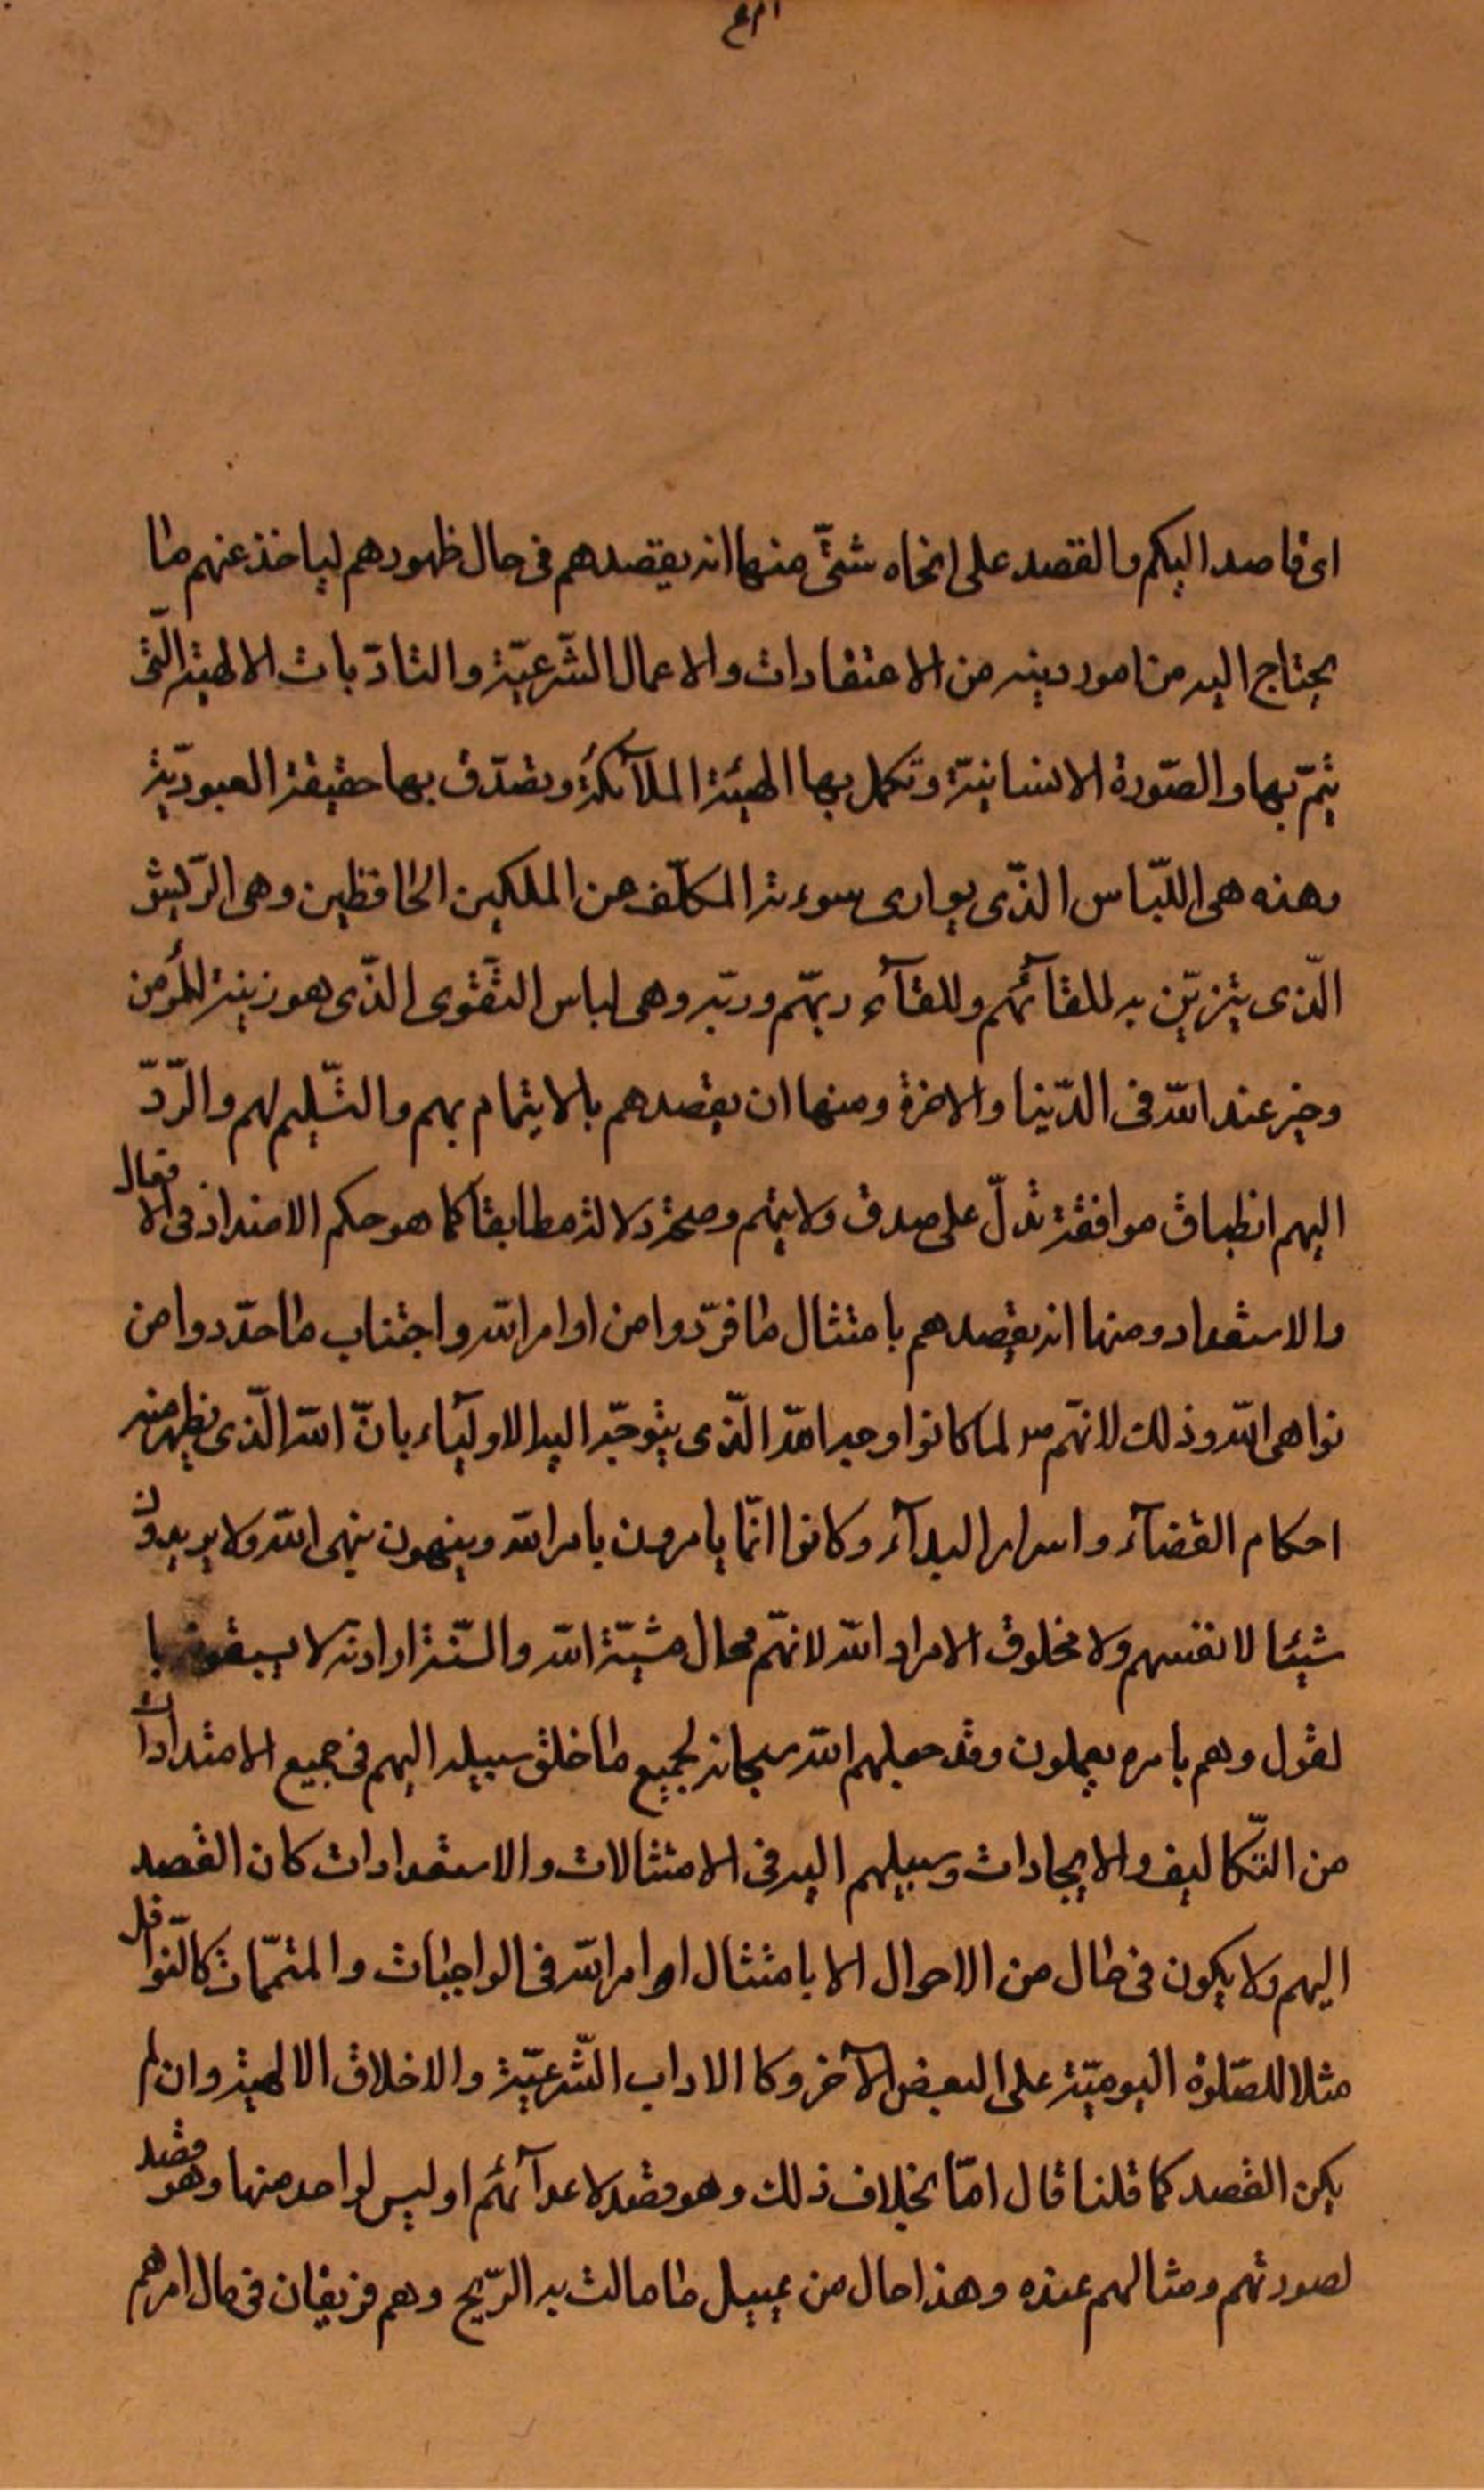 اى قاصدا اليكم والقصد على انحاء شتّى منها انه يقصدهم فى حال ظهورهم لياخذ عنهم ما
يحتاج اليه من امور دينه من الاعتقادات والاعمال الشّرعيّة والتادّبات الالهية الّتى
تتمّ بها والصّورة الانسانيّة وتكمل بها الهيئة الملآئكة وتصدّق بها حقيقة العبوديّة
وهذه هى اللّباس الذّى يوارى سوءته المكلّف عن الملكين الحافظين وهى الرّيش
الّذى يتزيّن به للقآئهم وللقآء ربّهم وربّه وهى لباس التّقوى الذّى هو زينة المؤمن
وخير عند الله فى الدّنيا والاخرة ومنها ان يقصدهم بالايتمام بهم والتّسليم لهم والرّدّ
اليهم انطباق موافقة تدلّ على صدق ولايتهم وصحة دلالة مطابقة كما هو حكم الامتداد فى الافعال
والاستعداد ومنها انه يقصدهم بامتثال ما قرّروا من اوامر الله واجتناب ما حدّدوا من
نواهى الله وذلك لانهّم لما كانوا وجه الله الذّى يتوجّه اليه الاوليآء بانّ الله الّذى يظهر منه
احكام القضآء واسرار البدآء وكانوا انّما يامرون بامر الله وينهون بنهى الله ولا يريدون
شيئا لانفسهم ولا مخلوق الا مراد الله لانهّم محال مشيّة الله والسّنة ارادته لا يسبقونه با
لقول وهم بامره يعملون وقد جعلهم الله سبحانه لجميع ما خلق سبيله اليهم فى جميع الامتدادات
من التّكاليف والايجادات وسبيلهم اليه فى الامتثالات والاستعدادات كان القصد
اليهم ولا يكون فى حال من الاحوال الا بامتثال اوامر الله فى الواجبات والمتمّمات كالنّوافل
مثلا للصّلوة اليوميّة على البعض الآخر وكا الاداب الشّرعيّة والاخلاق الالهية وان لم
يكن القصد كما قلنا قال امّا بخلاف ذلك وهو قصد لاعدآئهم اوليس لواحد منها وهو قصد
لصورتهم ومثالهم عنده وهذا حال من يميل ما مالت به الرّيح وهم فريقان فى مال امرهم